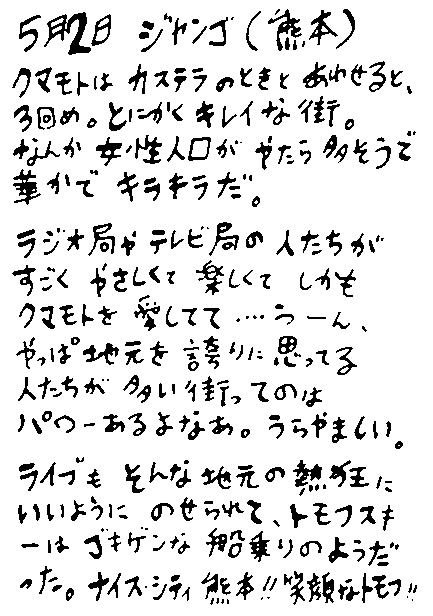 5月2日 ジャンゴ(熊本)
クマモトは カステラのときと あわせると、
3回め。とにかく キレイな 街。
なんか 女性人口が やたら 多そうで
華かで キラキラだ。
ラジオ局や テレビ局の 人たちが
すごく やさしくて 楽しくて しかも
クマモトを 愛してて ‥‥うーん、
やっぱ 地元を 誇りに 思ってる
人たちが 多い 街ってのは
パワーあるよなあ。うらやましい。
ライブも そんな 地元の 熱狂に
いいように のせられて、トモフスキ
ーは ゴキゲンな 船乗りのようだ
った。ナイス・シティ 熊本!! 笑顔なトモフ!!